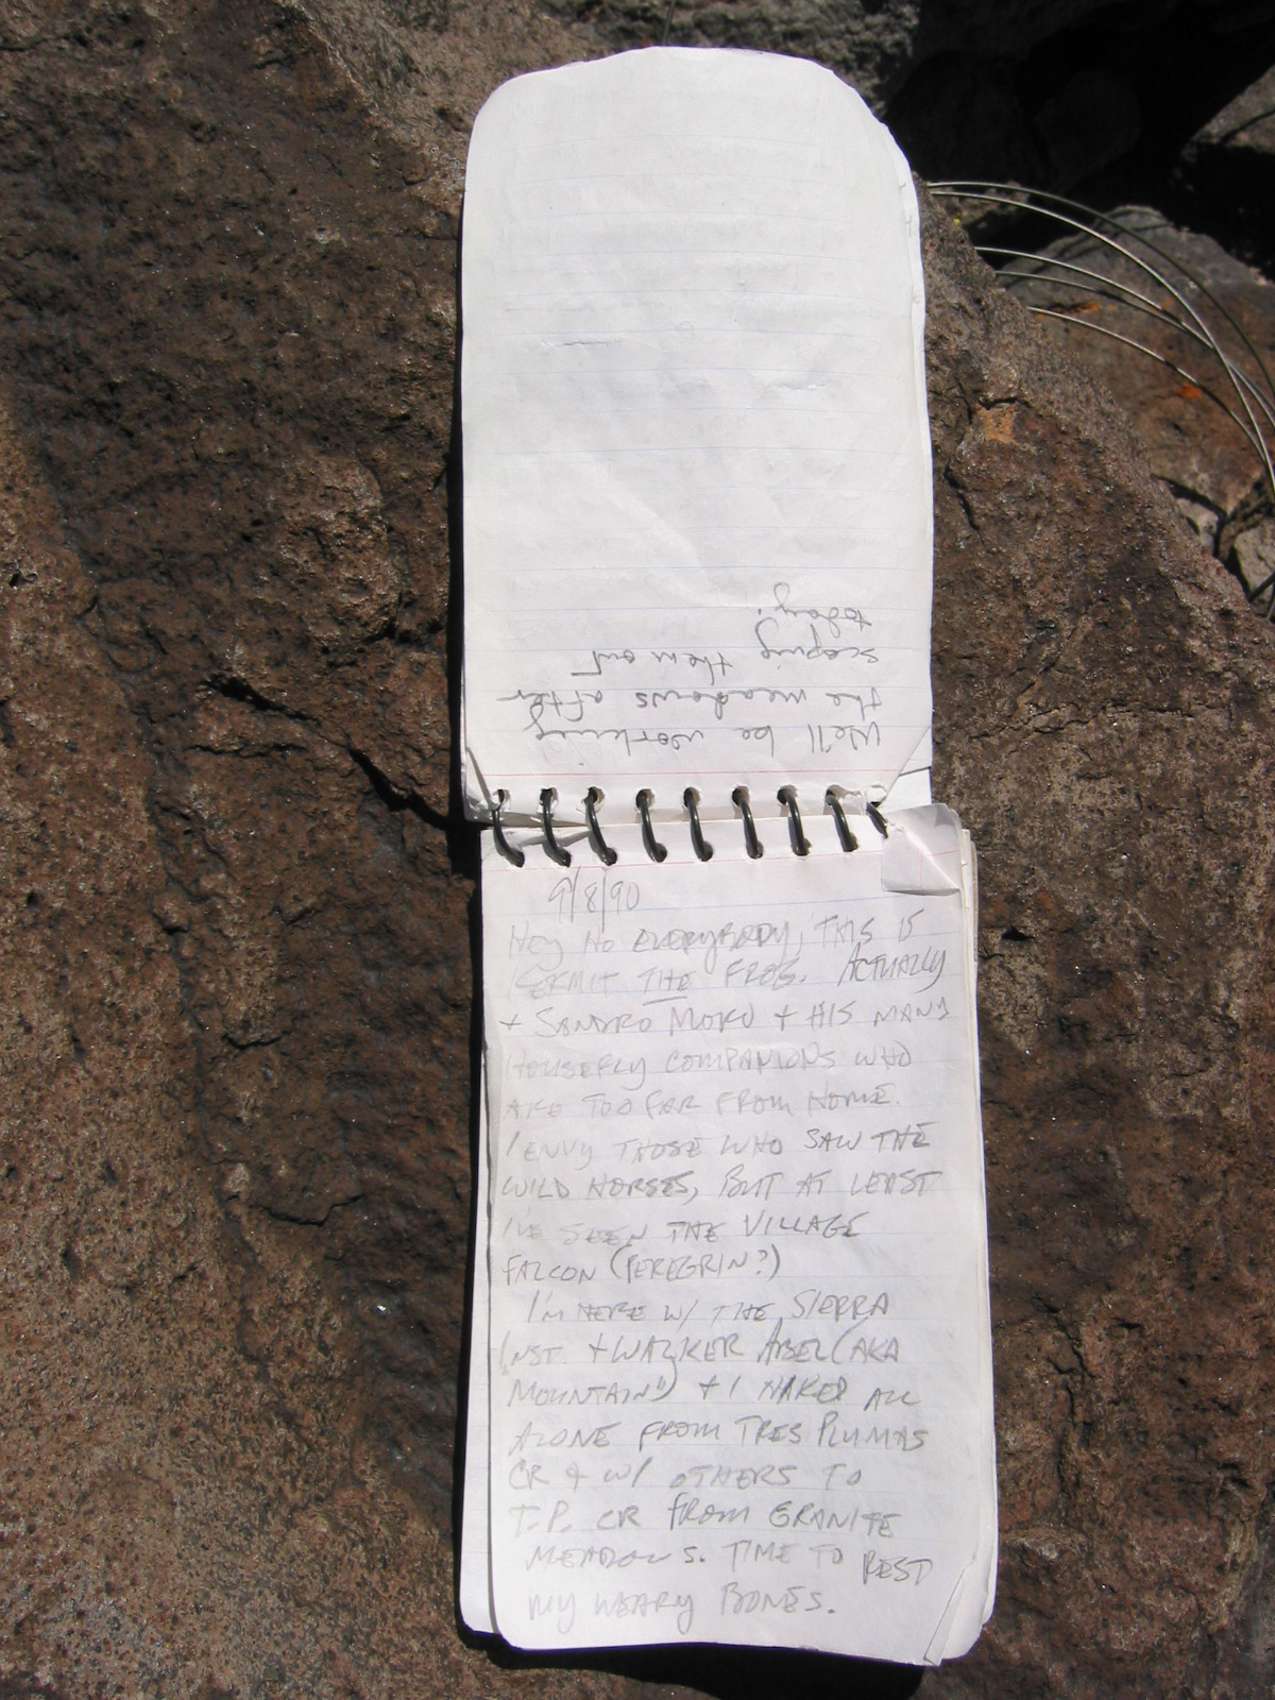 We'll be working
the meadows after
scoping them out
today.
9/8/90
HEY HO EVERYBODY, THIS IS
KERMIT THE FROG. ACTUALLY
+ SANDRO MOKU + HIS MANY
HOUSEFLY COMPANIONS WHO
ARE TOO FAR FROM HOME.
I ENVY THOSE WHO SAW THE
WILD HORSES, BUT AT LEAST
I'VE SEEN THE VILLAGE
FALCON (PEREGRIN?)
I'M HERE W/ THE SIERRA
INST. + WALKER ABEL (AKA
MOUNTAIN") + I HIKED ALL
ALONE FROM TRES PLUMAS
CR & W/ OTHERS TO
T.P. CR FROM GRANITE
MEADOWS. TIME TO REST
MY WEARY BONES.